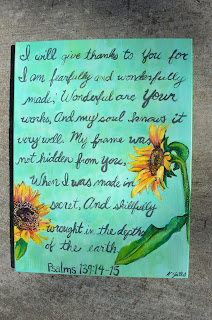 I will give thanks to You for
I am fearfully and wonderfully
made; Wonderful are Your
works, And my soul knows it
very well. My frame was
not hidden from You,
When I was made in
secret, And skillfully
wrought in the depths
of the earth
Psalms 139:14-15